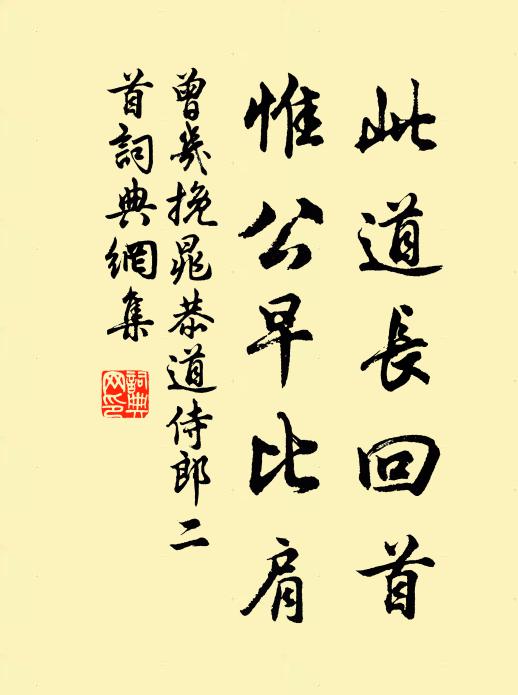 此道長回首
惟公早比肩
曾幾挽晁恭道侍郎二
首詞典網集
詞典
网印